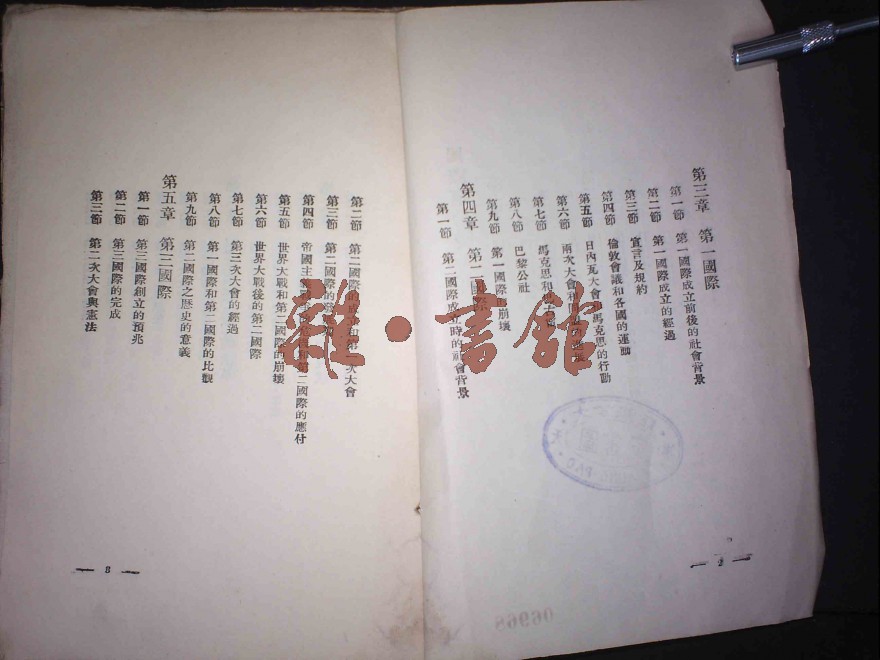 第三章 第一國際
第一節 第一國際成立前後的社會背景
第二節 第一國際成立的經過
第三節 宣言及規約
第四節 倫敦會議和各國的運動
第五節 日內瓦大會 馬克思的行動
第六節 兩次大會和
第七節 馬克思和
第八節 巴黎公社
第九節 第一國際的崩壞
第四章 第二國際
第一節 第二國際成立時的社會背景
— 2 —
第二節 第二國際的成立和第一次大會
第三節 第二國際的
第四節 帝國主義 第二國際的應付
第五節 世界大戰和第二國際的崩壞
第六節 世界大戰後的第二國際
第七節 第三次大會的經過
第八節 第一國際和第二國際的比觀
第九節 第二國際之歷史的意義
第五章 第三國際
第一節 第三國際創立的預兆
第二節 第三國際的完成
第三節 第二次大會與憲法
— 3 —
雜·書館
06968